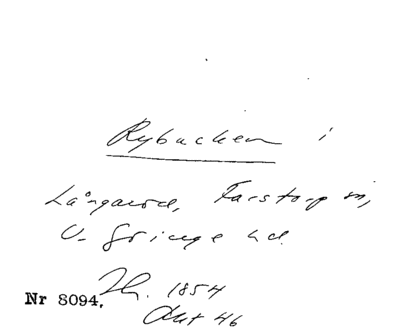 Rybacken i
Långaröd, Farstorp sn,
V. Göinge hd.
Nr 8094. Lh. 1854
Akt 46